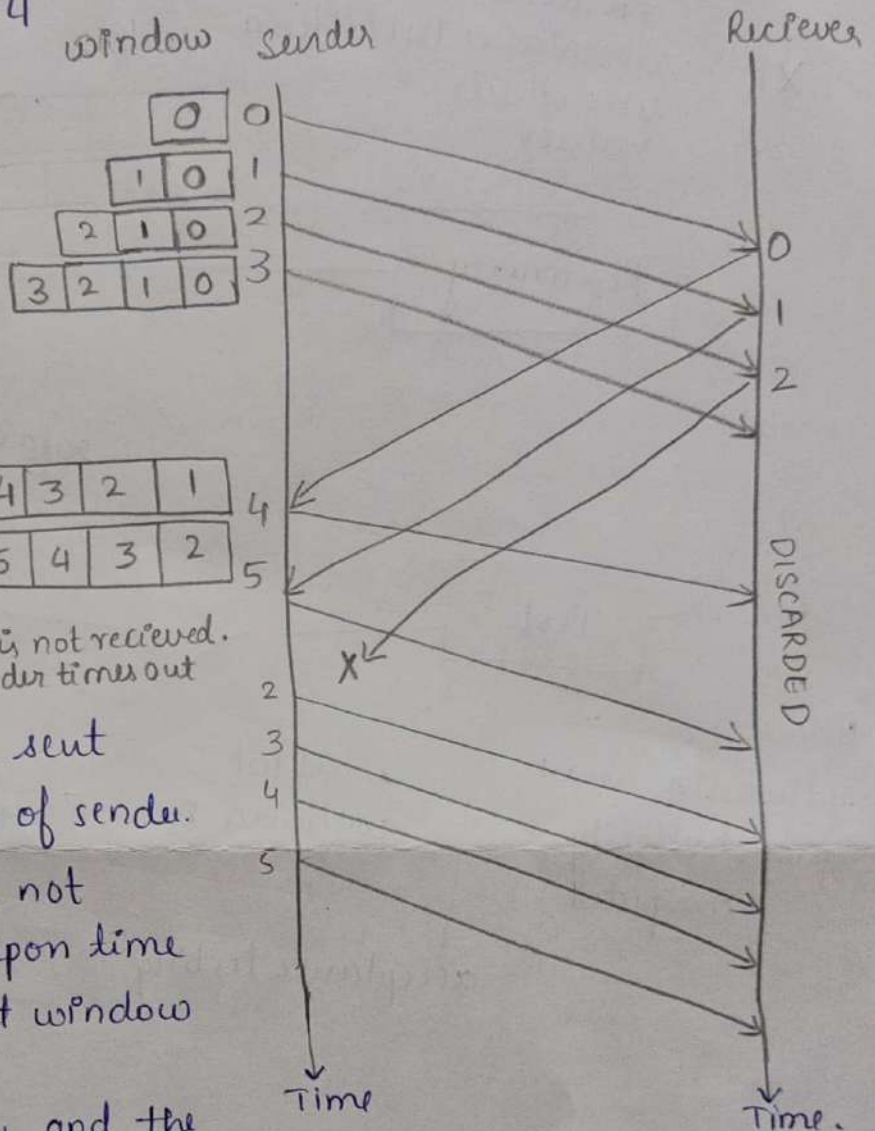 4
window sender Reciever
0 0
1 0 1
2 1 0 2
3 2 1 0 3
0
1
2
4 3 2 1 4
5 4 3 2 5
DISCARDED
is not recieved.
der times out
X
2
sent
3
of sender.
4
not
5
pon time
t window
and the
Time
Time.